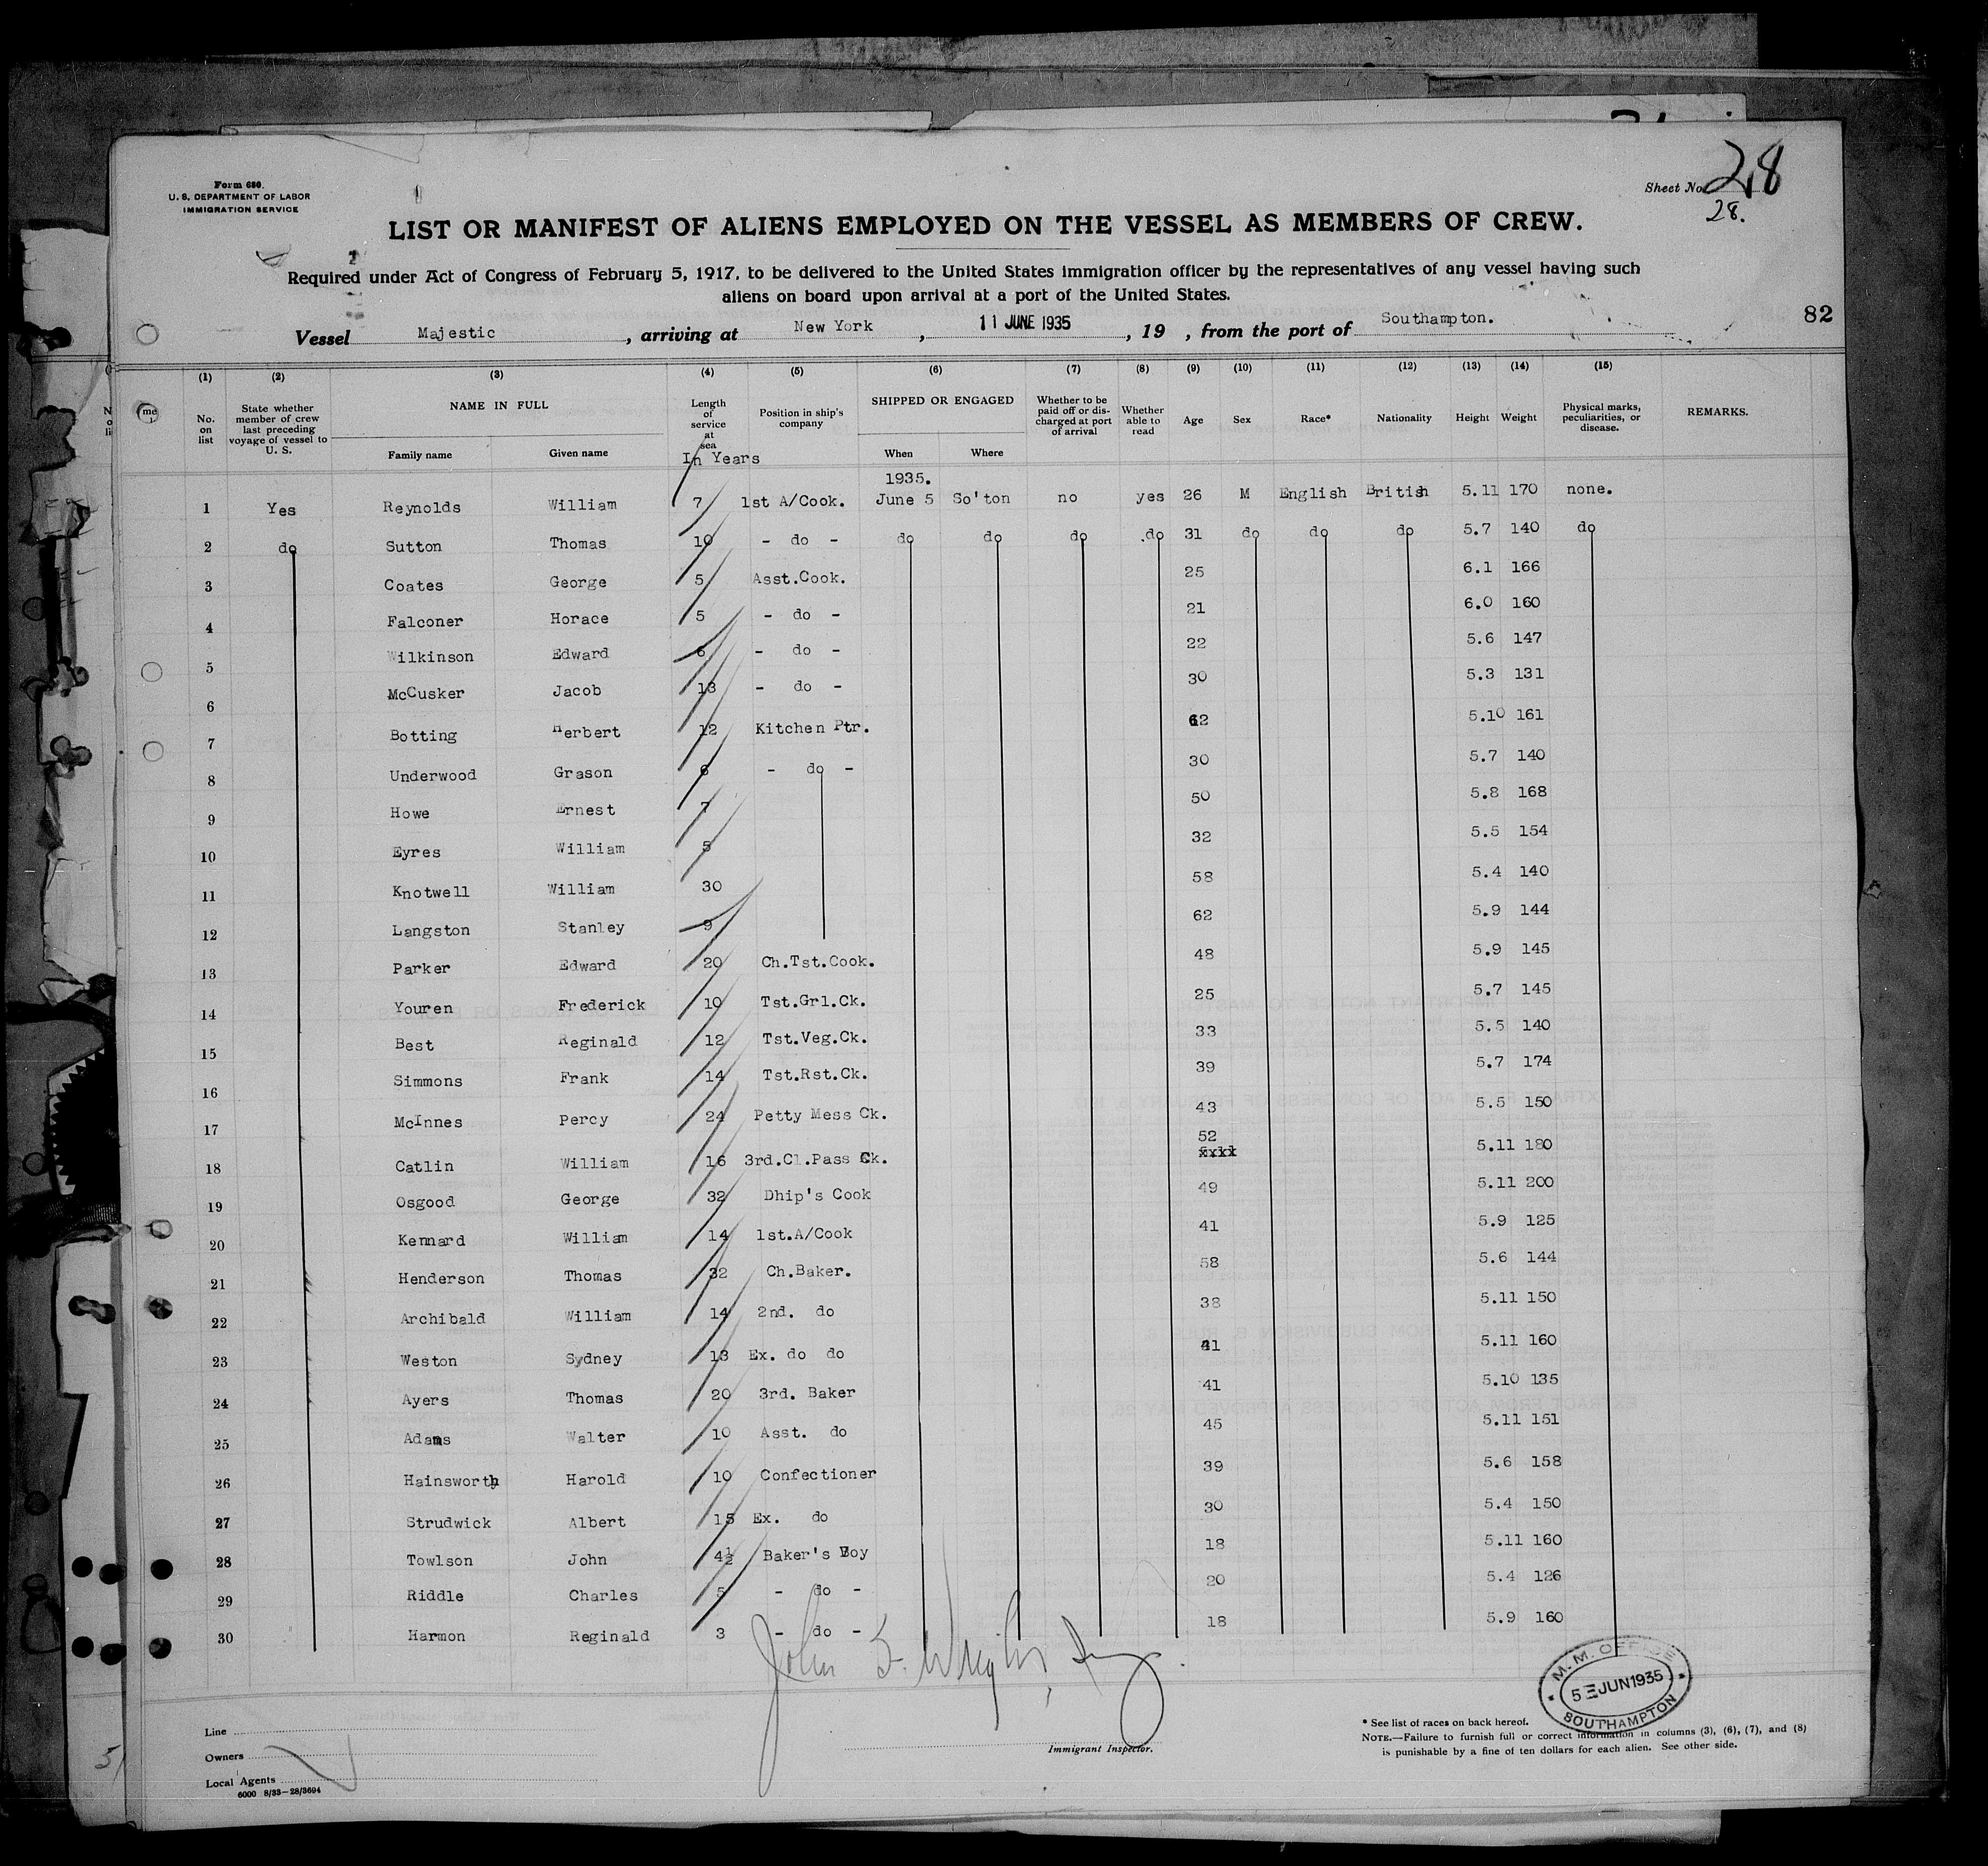 Form 680.
U. S. DEPARTMENT OF LABOR
IMMIGRATION SERVICE
Sheet No. 28
28.
LIST OR MANIFEST OF ALIENS EMPLOYED ON THE VESSEL AS MEMBERS OF CREW.
Required under Act of Congress of February 5, 1917, to be delivered to the United States immigration officer by the representatives of any vessel having such
aliens on board upon arrival at a port of the United States.
82
Vessel Majestic, arriving at New York, 11 JUNE 1935, 19 , from the port of Southampton.
(1) (2) (3) (4) (5) (6) (7) (8) (9) (10) (11) (12) (13) (14) (15)
No. on list State whether member of crew last preceding voyage of vessel to U. S. NAME IN FULL Family name Given name Length of service at sea In Years Position in ship's company SHIPPED OR ENGAGED When Where Whether to be paid off or discharged at port of arrival Whether able to read Age Sex Race* Nationality Height Weight Physical marks, peculiarities, or disease. REMARKS.
1935.
1 Yes Reynolds William 7 1st A/Cook. June 5 So'ton no yes 26 M English British 5.11 170 none.
2 do Sutton Thomas 10 - do - do do do do 31 do do do 5.7 140 do
3 Coates George 5 Asst.Cook. 25 6.1 166
4 Falconer Horace 5 - do - 21 6.0 160
5 Wilkinson Edward 6 - do - 22 5.6 147
6 McCusker Jacob 13 - do - 30 5.3 131
7 Botting Herbert 12 Kitchen Ptr. 62 5.10 161
8 Underwood Grason 6 - do - 30 5.7 140
9 Howe Ernest 7 50 5.8 168
10 Eyres William 5 32 5.5 154
11 Knotwell William 30 58 5.4 140
12 Langston Stanley 9 62 5.9 144
13 Parker Edward 20 Ch.Tst.Cook. 48 5.9 145
14 Youren Frederick 10 Tst.Grl.Ck. 25 5.7 145
15 Best Reginald 12 Tst.Veg.Ck. 33 5.5 140
16 Simmons Frank 14 Tst.Rst.Ck. 39 5.7 174
17 McInnes Percy 24 Petty Mess Ck. 43 5.5 150
18 Catlin William 16 3rd.Cl.Pass Ck. 52 5.11 180
19 Osgood George 32 Dhip's Cook 49 5.11 200
20 Kennard William 14 1st.A/Cook 41 5.9 125
21 Henderson Thomas 32 Ch.Baker. 58 5.6 144
22 Archibald William 14 2nd. do 38 5.11 150
23 Weston Sydney 13 Ex. do do 41 5.11 160
24 Ayers Thomas 20 3rd. Baker 41 5.10 135
25 Adams Walter 10 Asst. do 45 5.11 151
26 Hainsworth Harold 10 Confectioner 39 5.6 158
27 Strudwick Albert 15 Ex. do 30 5.4 150
28 Towlson John 4½ Baker's Boy 18 5.11 160
29 Riddle Charles 5 - do - 20 5.4 126
30 Harmon Reginald 3 - do - 18 5.9 160
John
M. M. OFFICE
5 JUN 1935
SOUTHAMPTON
Line
Owners
Local Agents
6000 8/33—28/3694
Immigrant Inspector.
* See list of races on back hereof.
NOTE.—Failure to furnish full or correct information in columns (3), (6), (7), and (8)
is punishable by a fine of ten dollars for each alien. See other side.